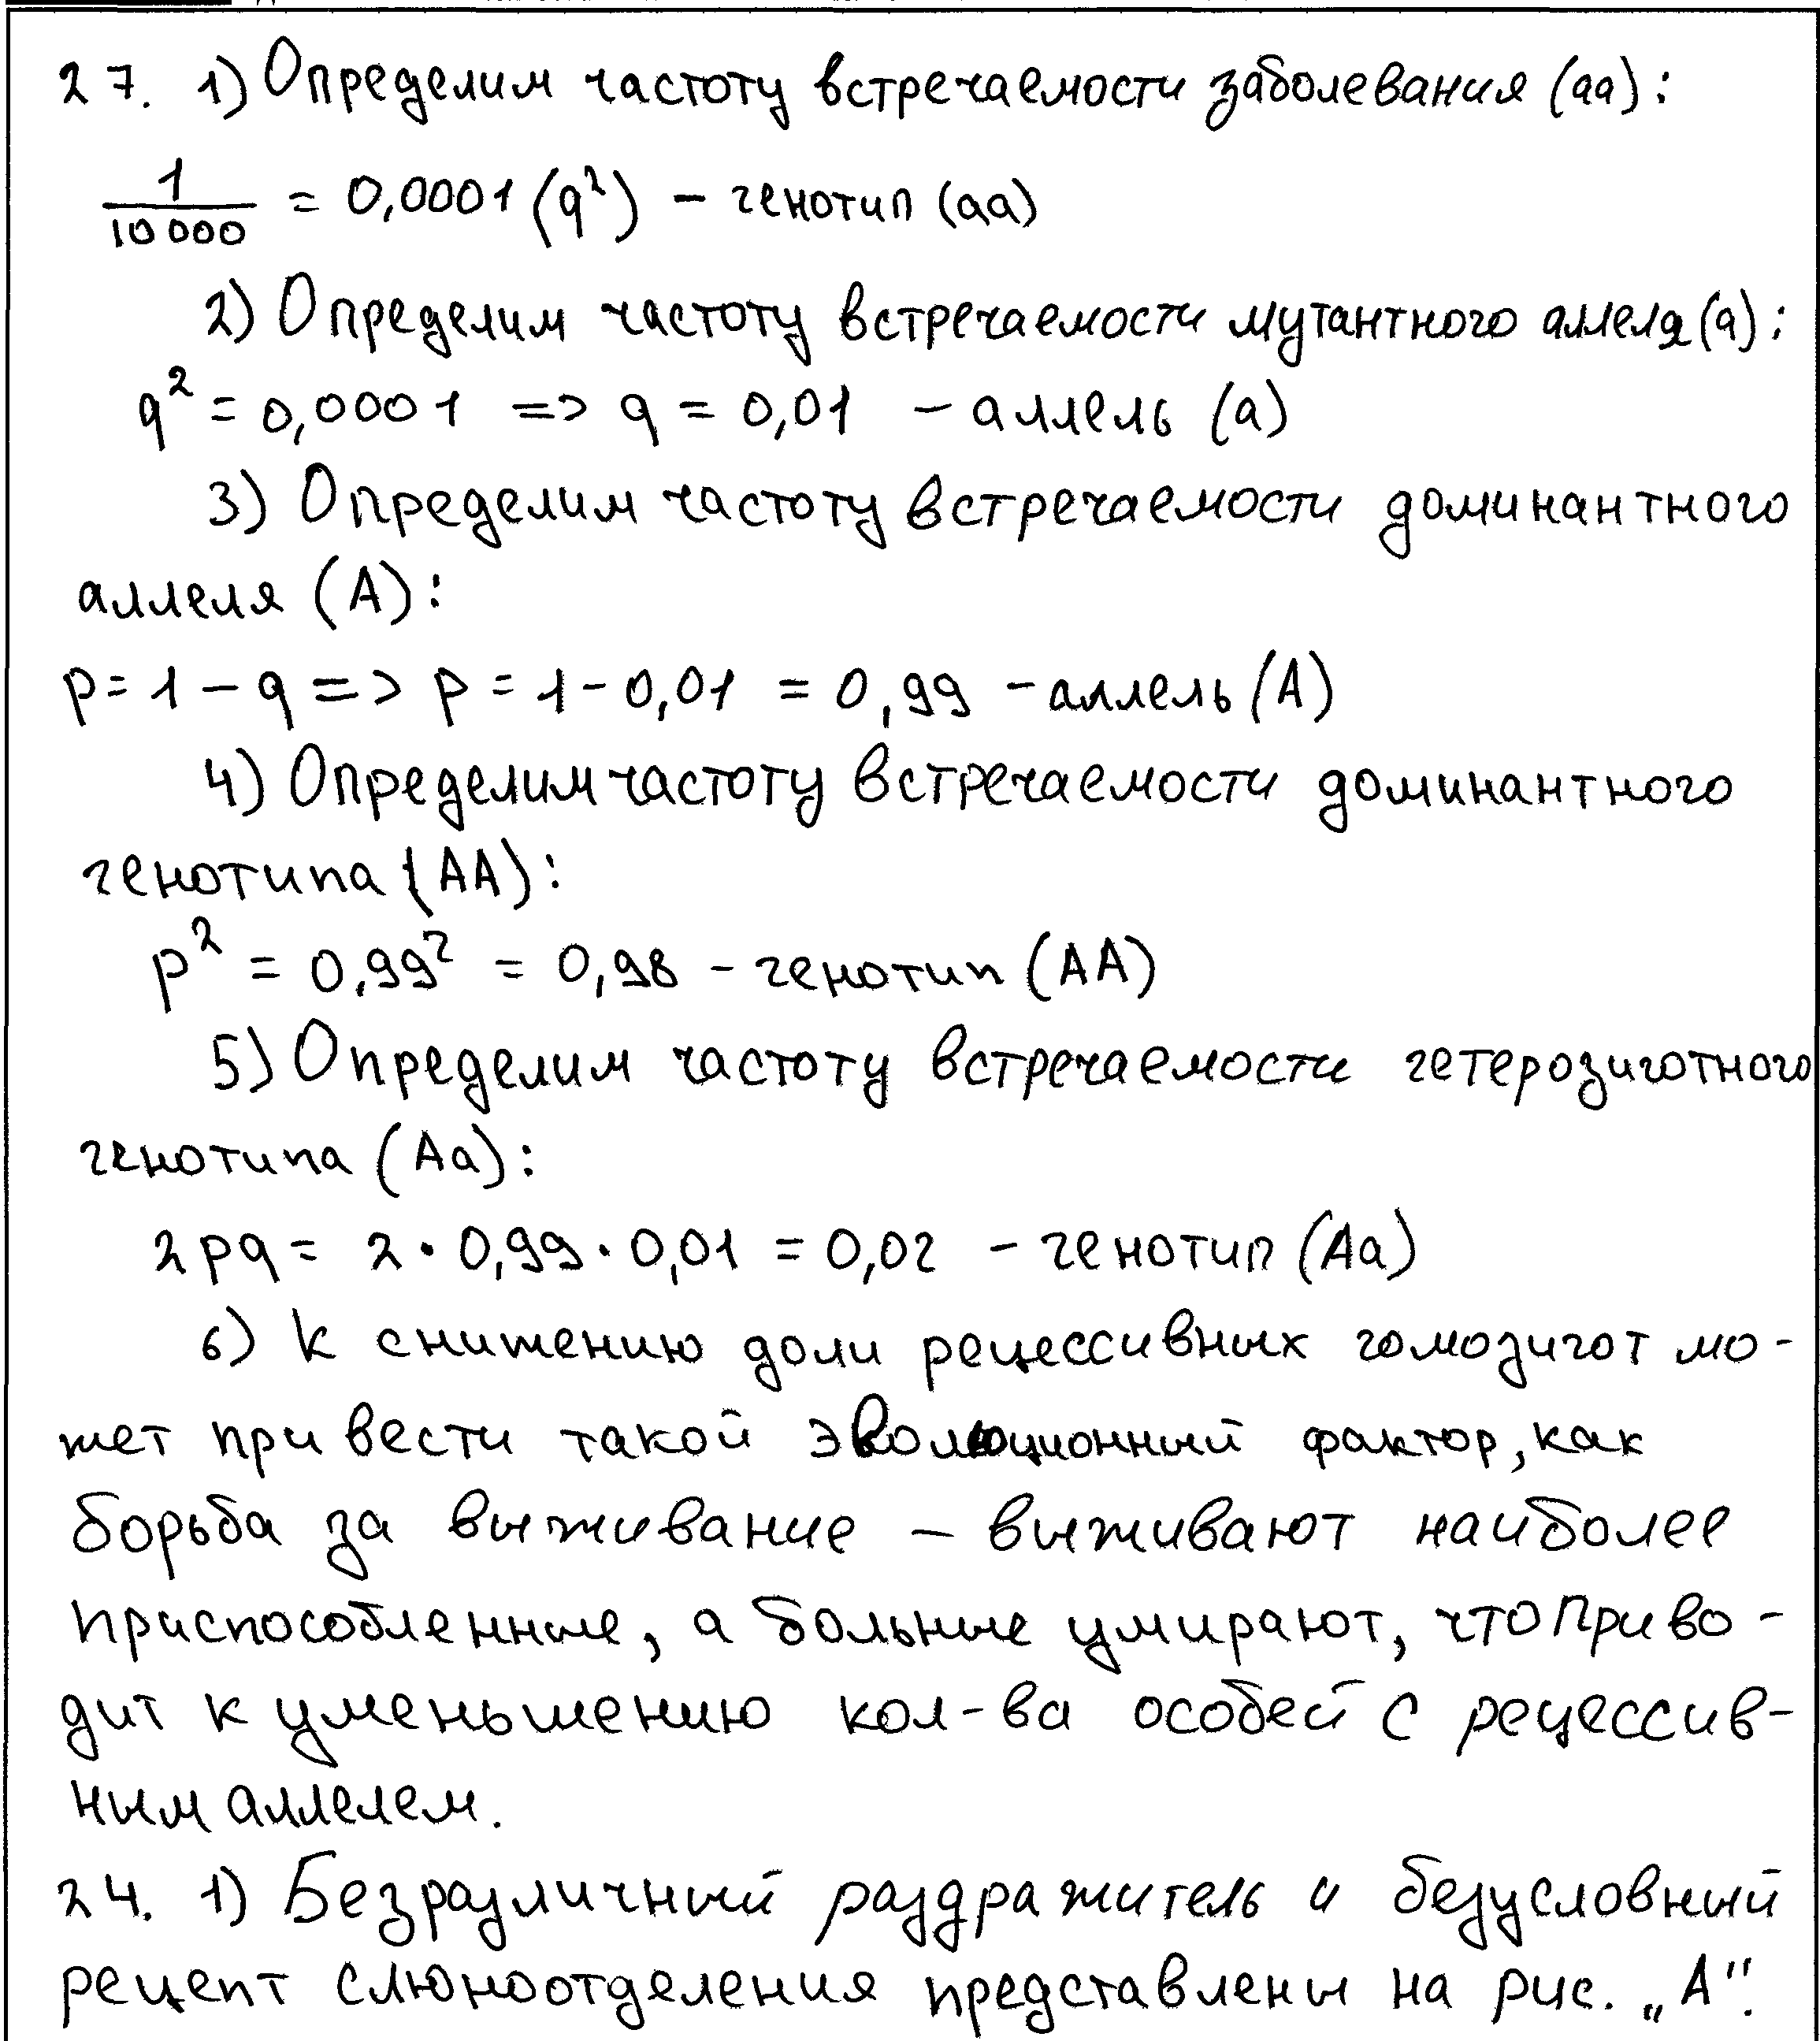 27. 1) Определим частоту встречаемости заболевания (аа):
1/10 000 = 0,0001 (q²) – генотип (аа)
2) Определим частоту встречаемости мутантного аллеля (а):
q² = 0,0001 => q = 0,01 – аллель (а)
3) Определим частоту встречаемости доминантного
аллеля (А):
p = 1 – q => p = 1 - 0,01 = 0,99 – аллель (А)
4) Определим частоту встречаемости доминантного
генотипа (АА):
p² = 0,99² = 0,98 – генотип (АА)
5) Определим частоту встречаемости гетерозиготного
генотипа (Аа):
2pq = 2 · 0,99 · 0,01 = 0,02 – генотип (Аа)
6) К снижению доли рецессивных гомозигот мо-
жет привести такой эволюционный фактор, как
борьба за выживание – выживают наиболее
приспособленные, а больные умирают, что приво-
дит к уменьшению кол-ва особей с рецессив-
ным аллелем.
24. 1) Безразличный раздражитель и безусловный
рецепт слюноотделения представлены на рис. „А".